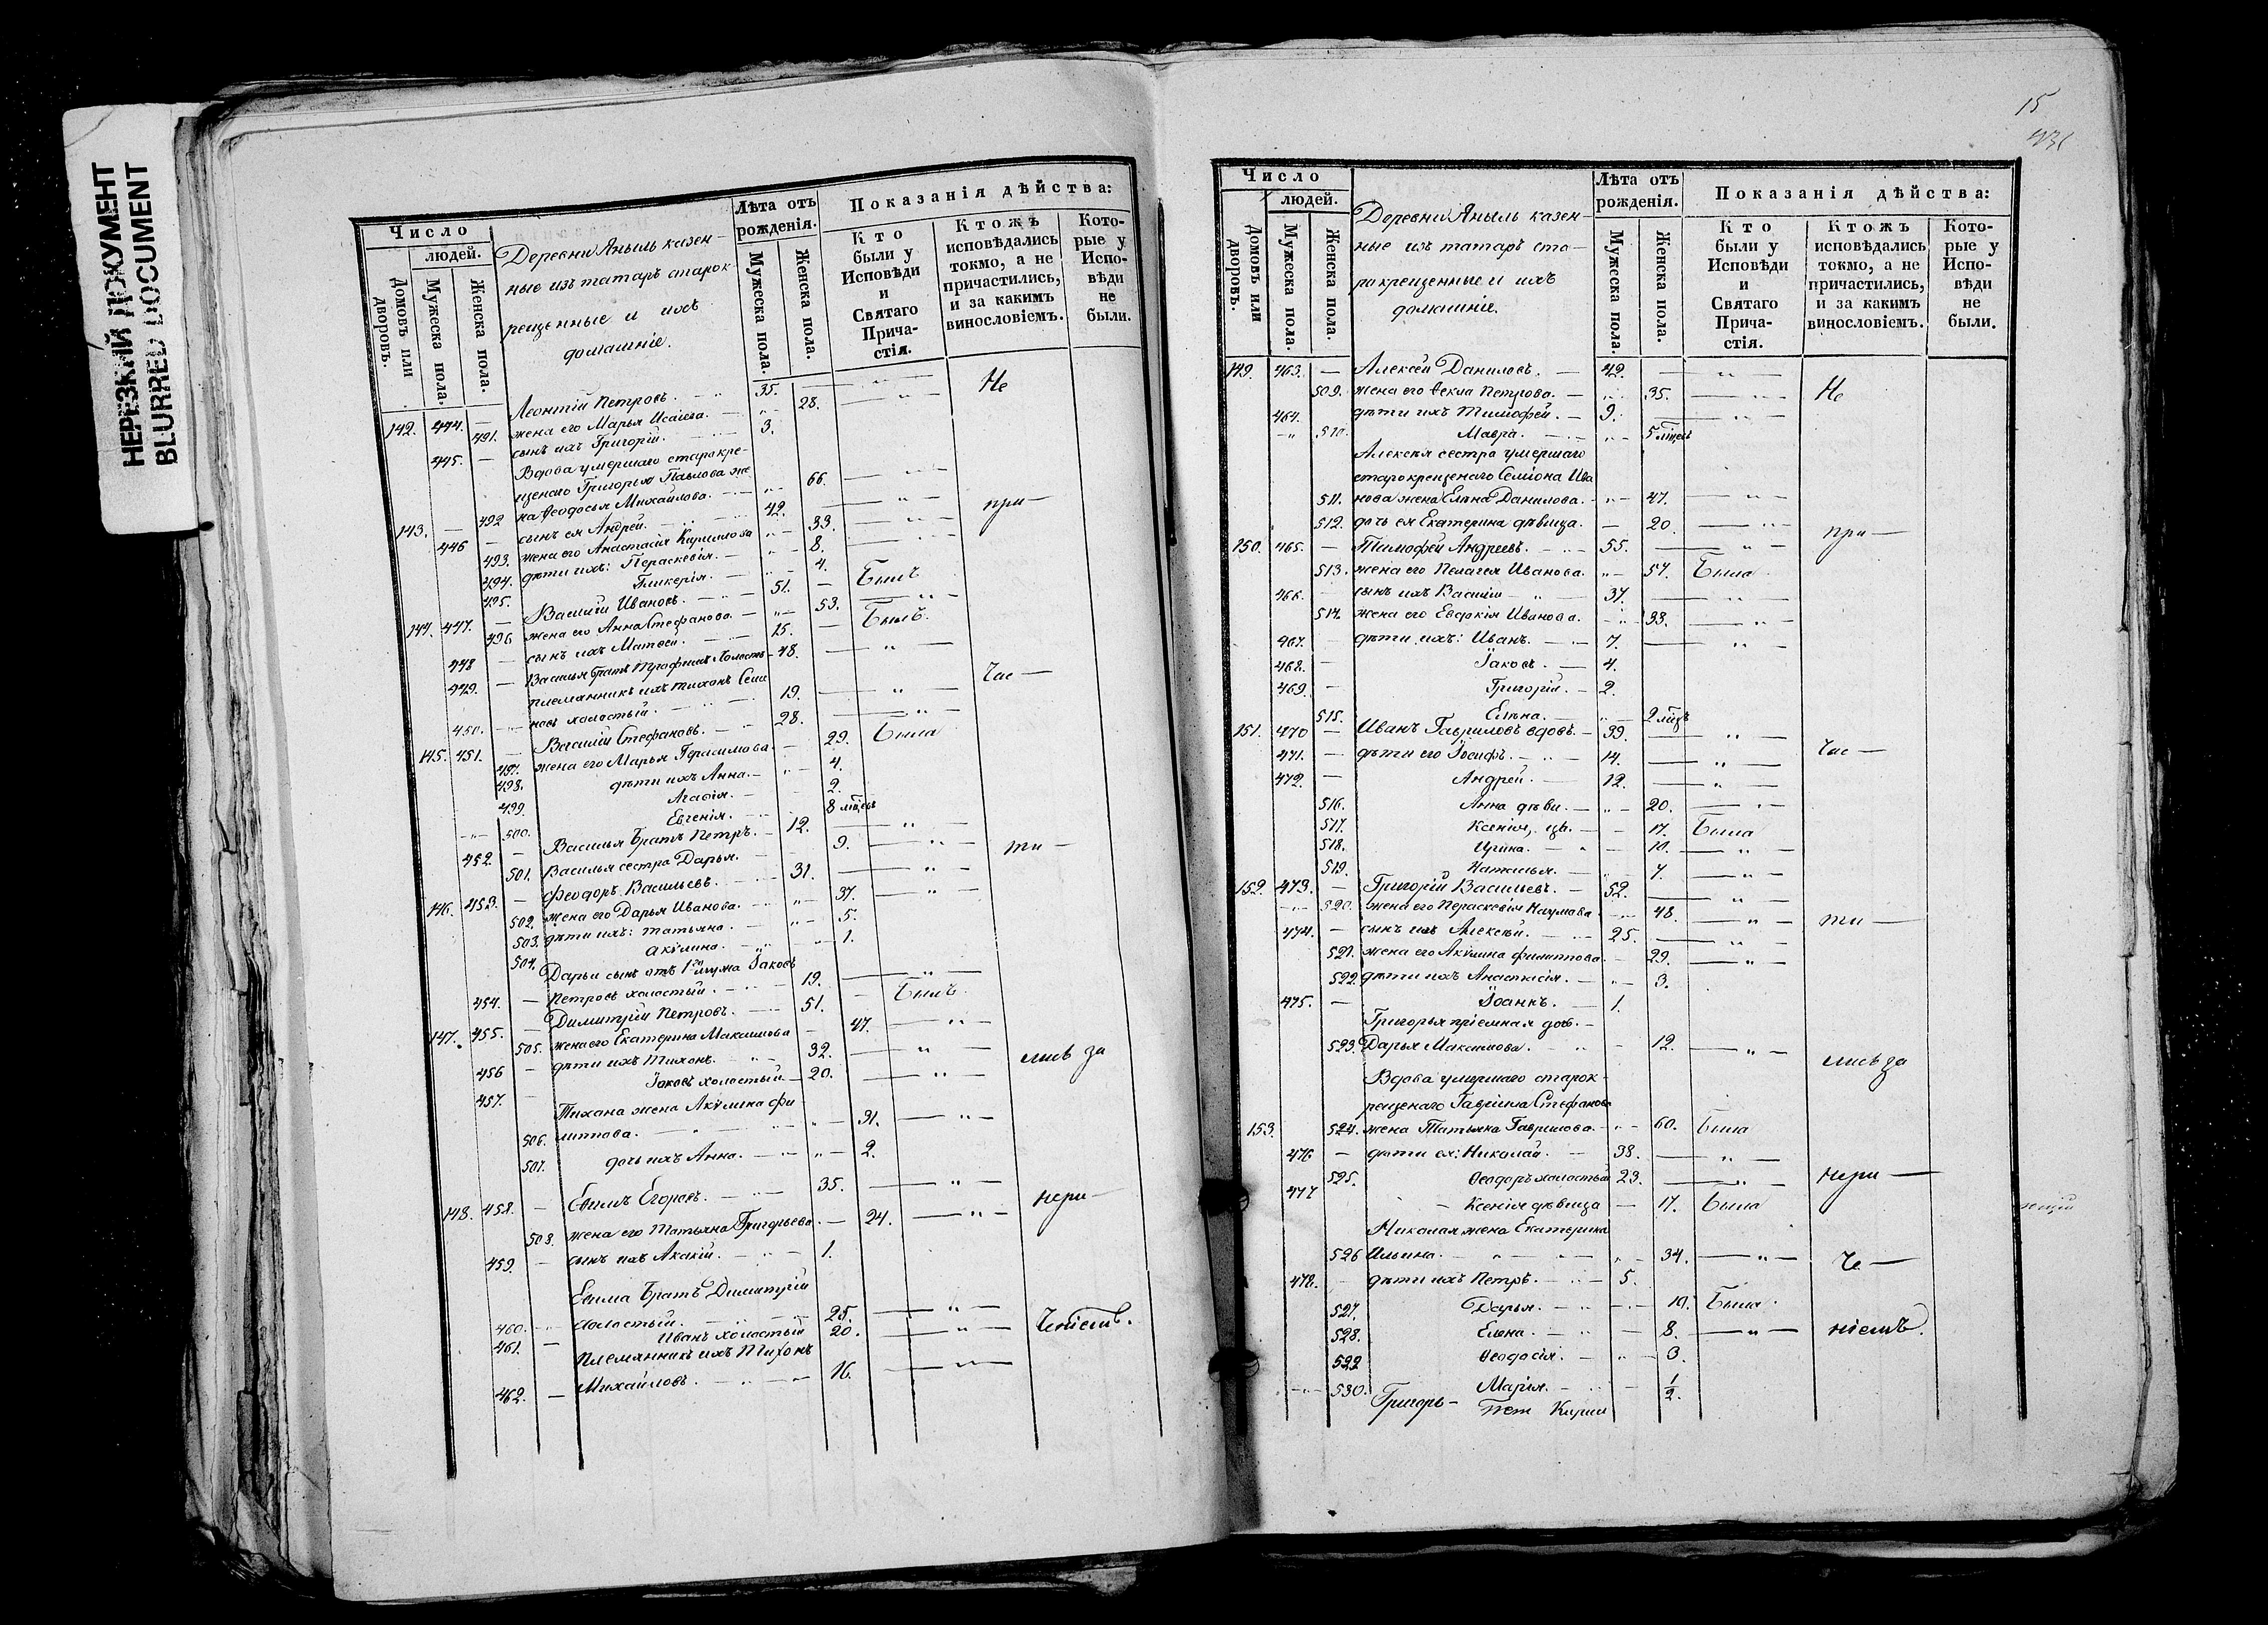 НЕРЕЗКИЙ ДОКУМЕНТ
BLURRED DOCUMENT
Число
людей.
Домовъ или дворовъ.
Мужеска пола.
Женска пола.
Деревни Аныль казен-
ные изъ татаръ старок-
рещенные и ихъ
домашніе.
Лѣта отъ рожденія.
Мужеска пола.
Женска пола.
Показанія дѣйства:
Кто были у Исповѣди и Святаго Прича-стія.
Ктожъ исповѣдались токмо, а не причастились, и за какимъ винословіемъ.
Кото-рые у Испо-вѣди не были.
142. 444. — Леонтій Петровъ. — 35. — „ — Не
491. жена его Марья Исаіева. — „ — 28. — „ —
445. — сынъ ихъ Григорій. — 3.
Вдова умершаго старокре-
щенаго Григорья Павлова же
143. — 492 на Ѳеодосья Михайлова. — „ — 66. — „ —
446 — сынъ ея Андрей. — 42. — „ — при —
493. жена его Анастасія Кирилова „ — 33. — „ —
494. дѣти ихъ: Параскевія. — „ — 8. — „ —
495. Гликерія. — „ — 4.
144. 447. — Василій Ивановъ. — 51. — Былъ
496 жена его Анна Стефанова. — „ — 53. — „ —
448 — сынъ ихъ Матвей. — 15. — Былъ.
449. — Василья братъ Трофимъ Холость — 48. — „ —
племянникъ ихъ Тихонъ Семе
450. — новъ холостый. — 19. — „ — Час —
145. 451. — Василій Стефановъ. — 28. — „ —
497. жена его Марья Герасимова. — 29. Была
498. дѣти ихъ Анна. — „ — 4.
499. Агафія. — 2.
— „ — 500. Евгенія. — 8 мѣсяц
452. — Василья братъ Петръ. — 12. — „ —
501. Василья сестра Дарья. — 9. — „ — ти —
146. 453. — Феодоръ Васильевъ. — 31. — „ —
502. жена его Дарья Иванова. — „ — 37. — „ —
503. дѣти ихъ: Татьяна. — „ — 5.
504. Акилина. — „ — 1.
Дарьи сынъ отъ 1го мужа Іаковъ
454. — Петровъ холостый. — 19. — „ —
147. 455. — Димитрій Петровъ. — 51. — Былъ
505. жена его Екатерина Максимова — 47. — „ —
456 — дѣти ихъ Тихонъ. — „ — 32. — „ — лись за
457. — Іаковъ холостый — 20. — „ —
Тихона жена Акилина Фи
506. липпова. — „ — 31. — „ —
507. дочь ихъ Анна. — „ — 2.
148. 458. — Евѳимъ Егоровъ. — „ — 35. — „ — нера —
508. жена его Татьяна Григорьева. — 24. — „ —
459. — сынъ ихъ Акакій. — „ — 1.
Евѳима братъ Димитрій
460. — холостый. — 25. — „ —
461. — Иванъ холостый 20. — „ — Ченіемъ.
племянникъ ихъ Тихонъ
462. — Михайловъ. — „ — 16. — „ —
15
Число
людей.
Домовъ или дворовъ.
Мужеска пола.
Женска пола.
Деревни Аныль казен-
ные изъ татаръ ста-
рокрещенные и ихъ
домашніе.
Лѣта отъ рожденія.
Мужеска пола.
Женска пола.
Показанія дѣйства:
Кто были у Исповѣди и Святаго Прича-стія.
Ктожъ исповѣдались токмо, а не причастились, и за какимъ винословіемъ.
Кото-рые у Испо-вѣди не были.
149. 463. — Алексей Даниловъ. — 42. — „ — Не
509. жена его Ѳекла Петрова. — „ — 35. — „ —
464. дѣти ихъ Тимофей. — 9. — „ —
— „ 510. Мавра. — „ — 5 мѣсяц
Алексѣя сестра умершаго
старокрещенаго Семіона Ива
511. нова жена Елена Данилова. — „ — 47. — „ —
512. дочь ея Екатерина дѣвица. — 20. — „ — при —
150. 465. — Тимофей Андреевъ. — 55. — „ —
513. жена его Пелагея Иванова. „ — 57. Была
466. — сынъ ихъ Василій — „ — 37. — „ —
514. жена его Евдокія Иванова. — „ — 33. — „ —
467. — дѣти ихъ: Иванъ. — 7. — „ —
468. — Іаковъ. — 4.
469. — Григорій. — 2.
515. Елѣна. — „ — 2 мѣс
151. 470 — Иванъ Гавриловъ вдовъ. — 39. — „ — Час —
471. — дѣти его Іосифъ. — „ — 14. — „ —
472. — Андрей. — 12. — „ —
516. Анна дѣви. — „ — 20. — „ —
517. Ксенія, дѣ. — 17. Была
518. Ирина. — „ — 10. — „ —
519. Наталья. — „ — 7. — „ —
152. 473. — Григорій Васильевъ. — 52. — „ —
— „ — 520. жена его Параскевія Наумова. — „ — 48. — „ — ти —
474. — сынъ ихъ Алексѣй. — „ — 25. — „ —
521. жена его Акилина Филиппова. — 29. — „ —
522. дѣти ихъ Анастасія. — „ — 3.
475. — Іоаннъ. — 1.
Григорья пріемная дочь. —
523. Дарья Максимова. — „ — 12. — „ — лись за
Вдова умершаго старок-
рещенаго Гавріила Стефанова
153. 524. жена Татьяна Гаврилова. — „ — 60. Была
476 — дѣти ея: Николай. — 38. — „ —
477 Ѳеодоръ холостый 23. — „ — нера —
525. — Ксенія дѣвица — 17. Была
Николая жена Екатерина
526 Ильина. — „ — 34. — „ — Че —
478. — дѣти ихъ Петръ. — „ — 5.
527. Дарья. — „ — 10. Была.
528. Елена. — „ — 8. — „ — ніемъ.
529 Ѳеодосія. — „ — 3.
— „ — 530. Марія. — „ — 1/2.
Григорь-